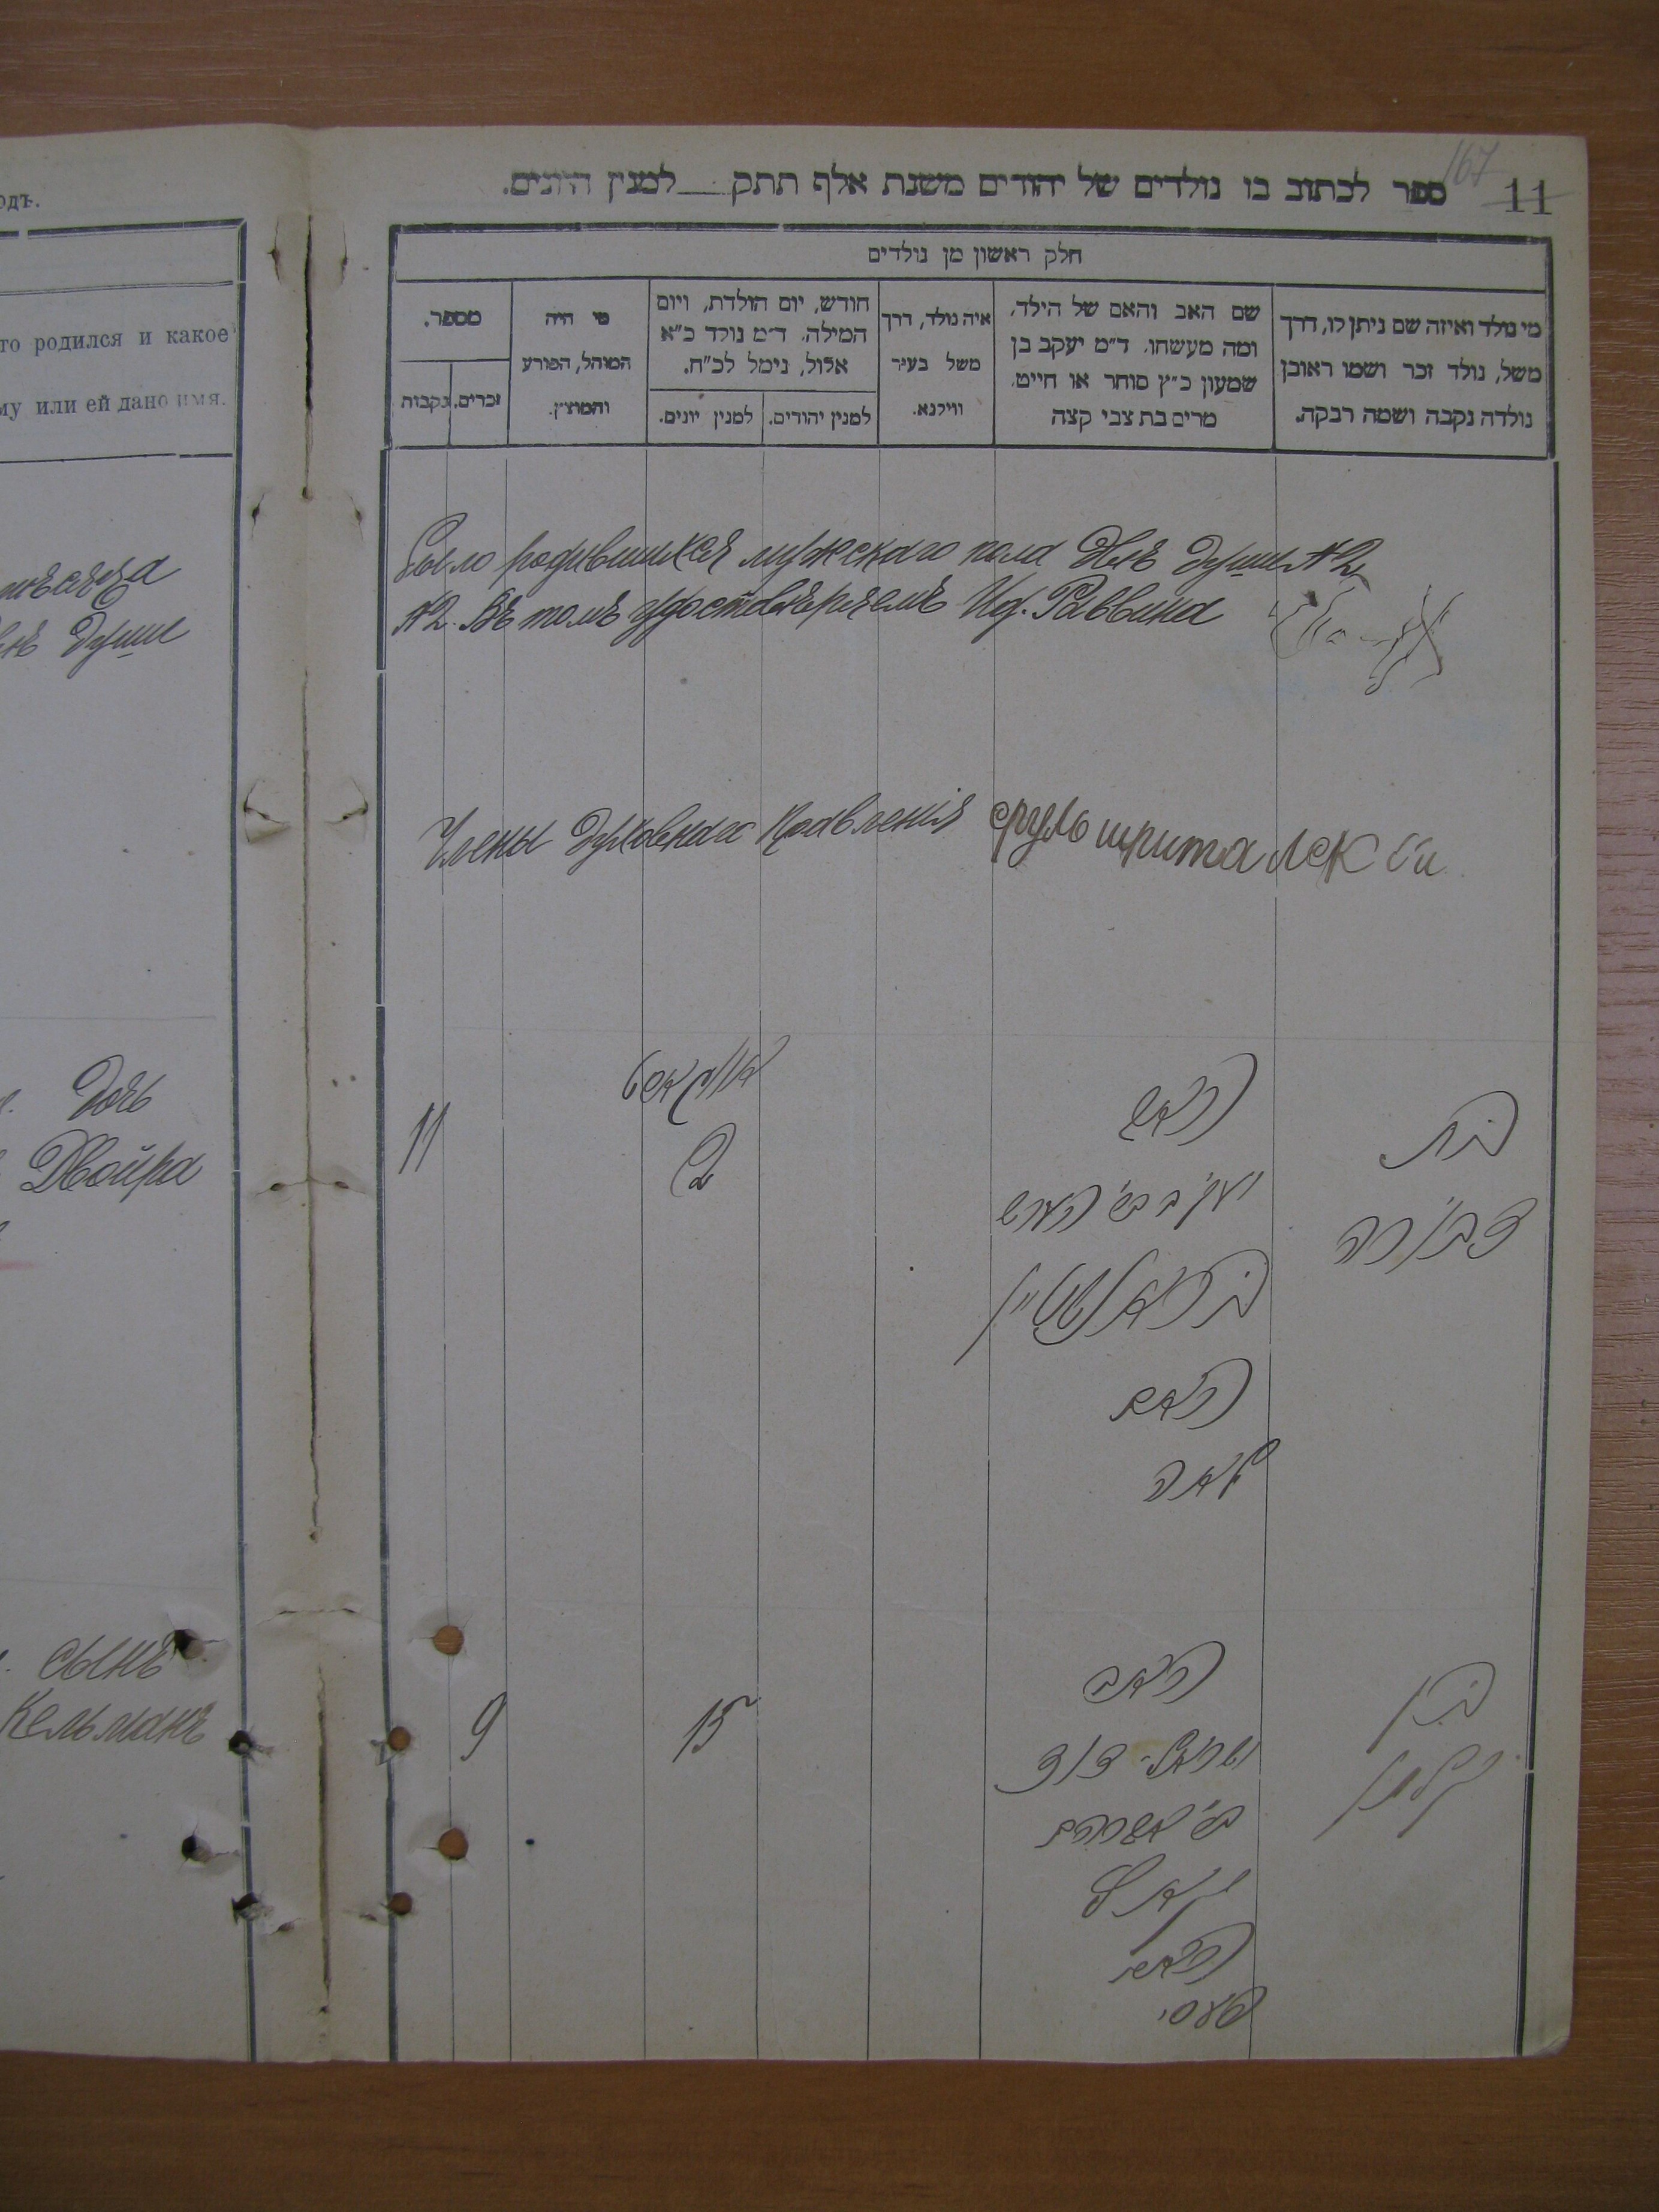 одъ.
то родился и какое
му или ей дано имя.
души
Дочь
Двойра
сынъ
Кельманъ
167
11
ספר לכתוב בו נולדים של יהודים משנת אלף תתק למנין היונים.
חלק ראשון מן נולדים
מי נולד ואיזה שם ניתן לו, דרך
משל, נולד זכר ושמו ראובן
נולדה נקבה ושמה רבקה.
שם האב והאם של הילד,
ומה מעשהו. ד״מ יעקב בן
שמעון כ״ץ סוחר או חייט,
מרים בת צבי קצה
איה נולד, דרך
משל בעיר
ווילנא.
חודש, יום הולדת, ויום
המילה. ד״מ נולד כ״א
אלול, נימל לכ״ח.
למנין יהודים.
למנין יונים.
מי היה
המוהל, הפורע
והמוצץ.
מספר.
זכרים.
נקבות
Было родившихся мужскаго пола две души №2
№2. Въ томъ удостоверяемъ Ид. Раввина
Члены Духовнаго Правленія сруль
בת
דבורה
האב
יעקב בר׳ הערש
האם
לאה
אויגוסט
2
11
בן
קלמן
האב
ישראל דוד
האם
15
9